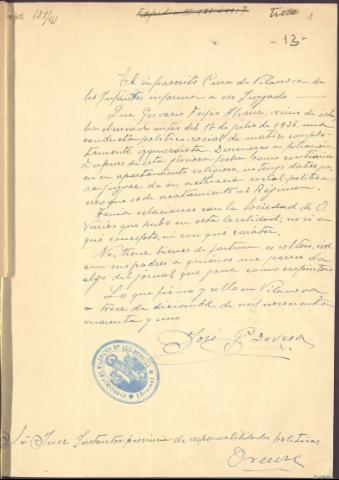 131/41
Trece 1
-13-
El infrascrito Cura de Vilanova de
los Infantes informa a ese Juzgado
Que Gervasio Feijóo Alvarez, vecino de ésta
ha observado antes del 18 de julio de 1936 una
conducta político-social de matiz comple-
tamente izquierdista.
Despues de esta gloriosa fecha, como continúa
en su apartamiento religioso, no tengo datos pa-
ra juzgar de su actitud social política
creo que es de acatamiento al Régimen.
Tenía relaciones con la Sociedad de O.
Varios que hubo en esta localidad, no sé en
qué concepto, ni con qué carácter.
No tiene bienes de fortuna, es soltero, vive
con sus padres a quienes me parece da
algo del jornal que gana como carpintero
Lo que firmo y sello en Vilanova
a trece de diciembre de mil novecientos
cuarenta y uno
José G. Devesa
Sr. Juez Instructor provincial de responsabilidades políticas
Orense